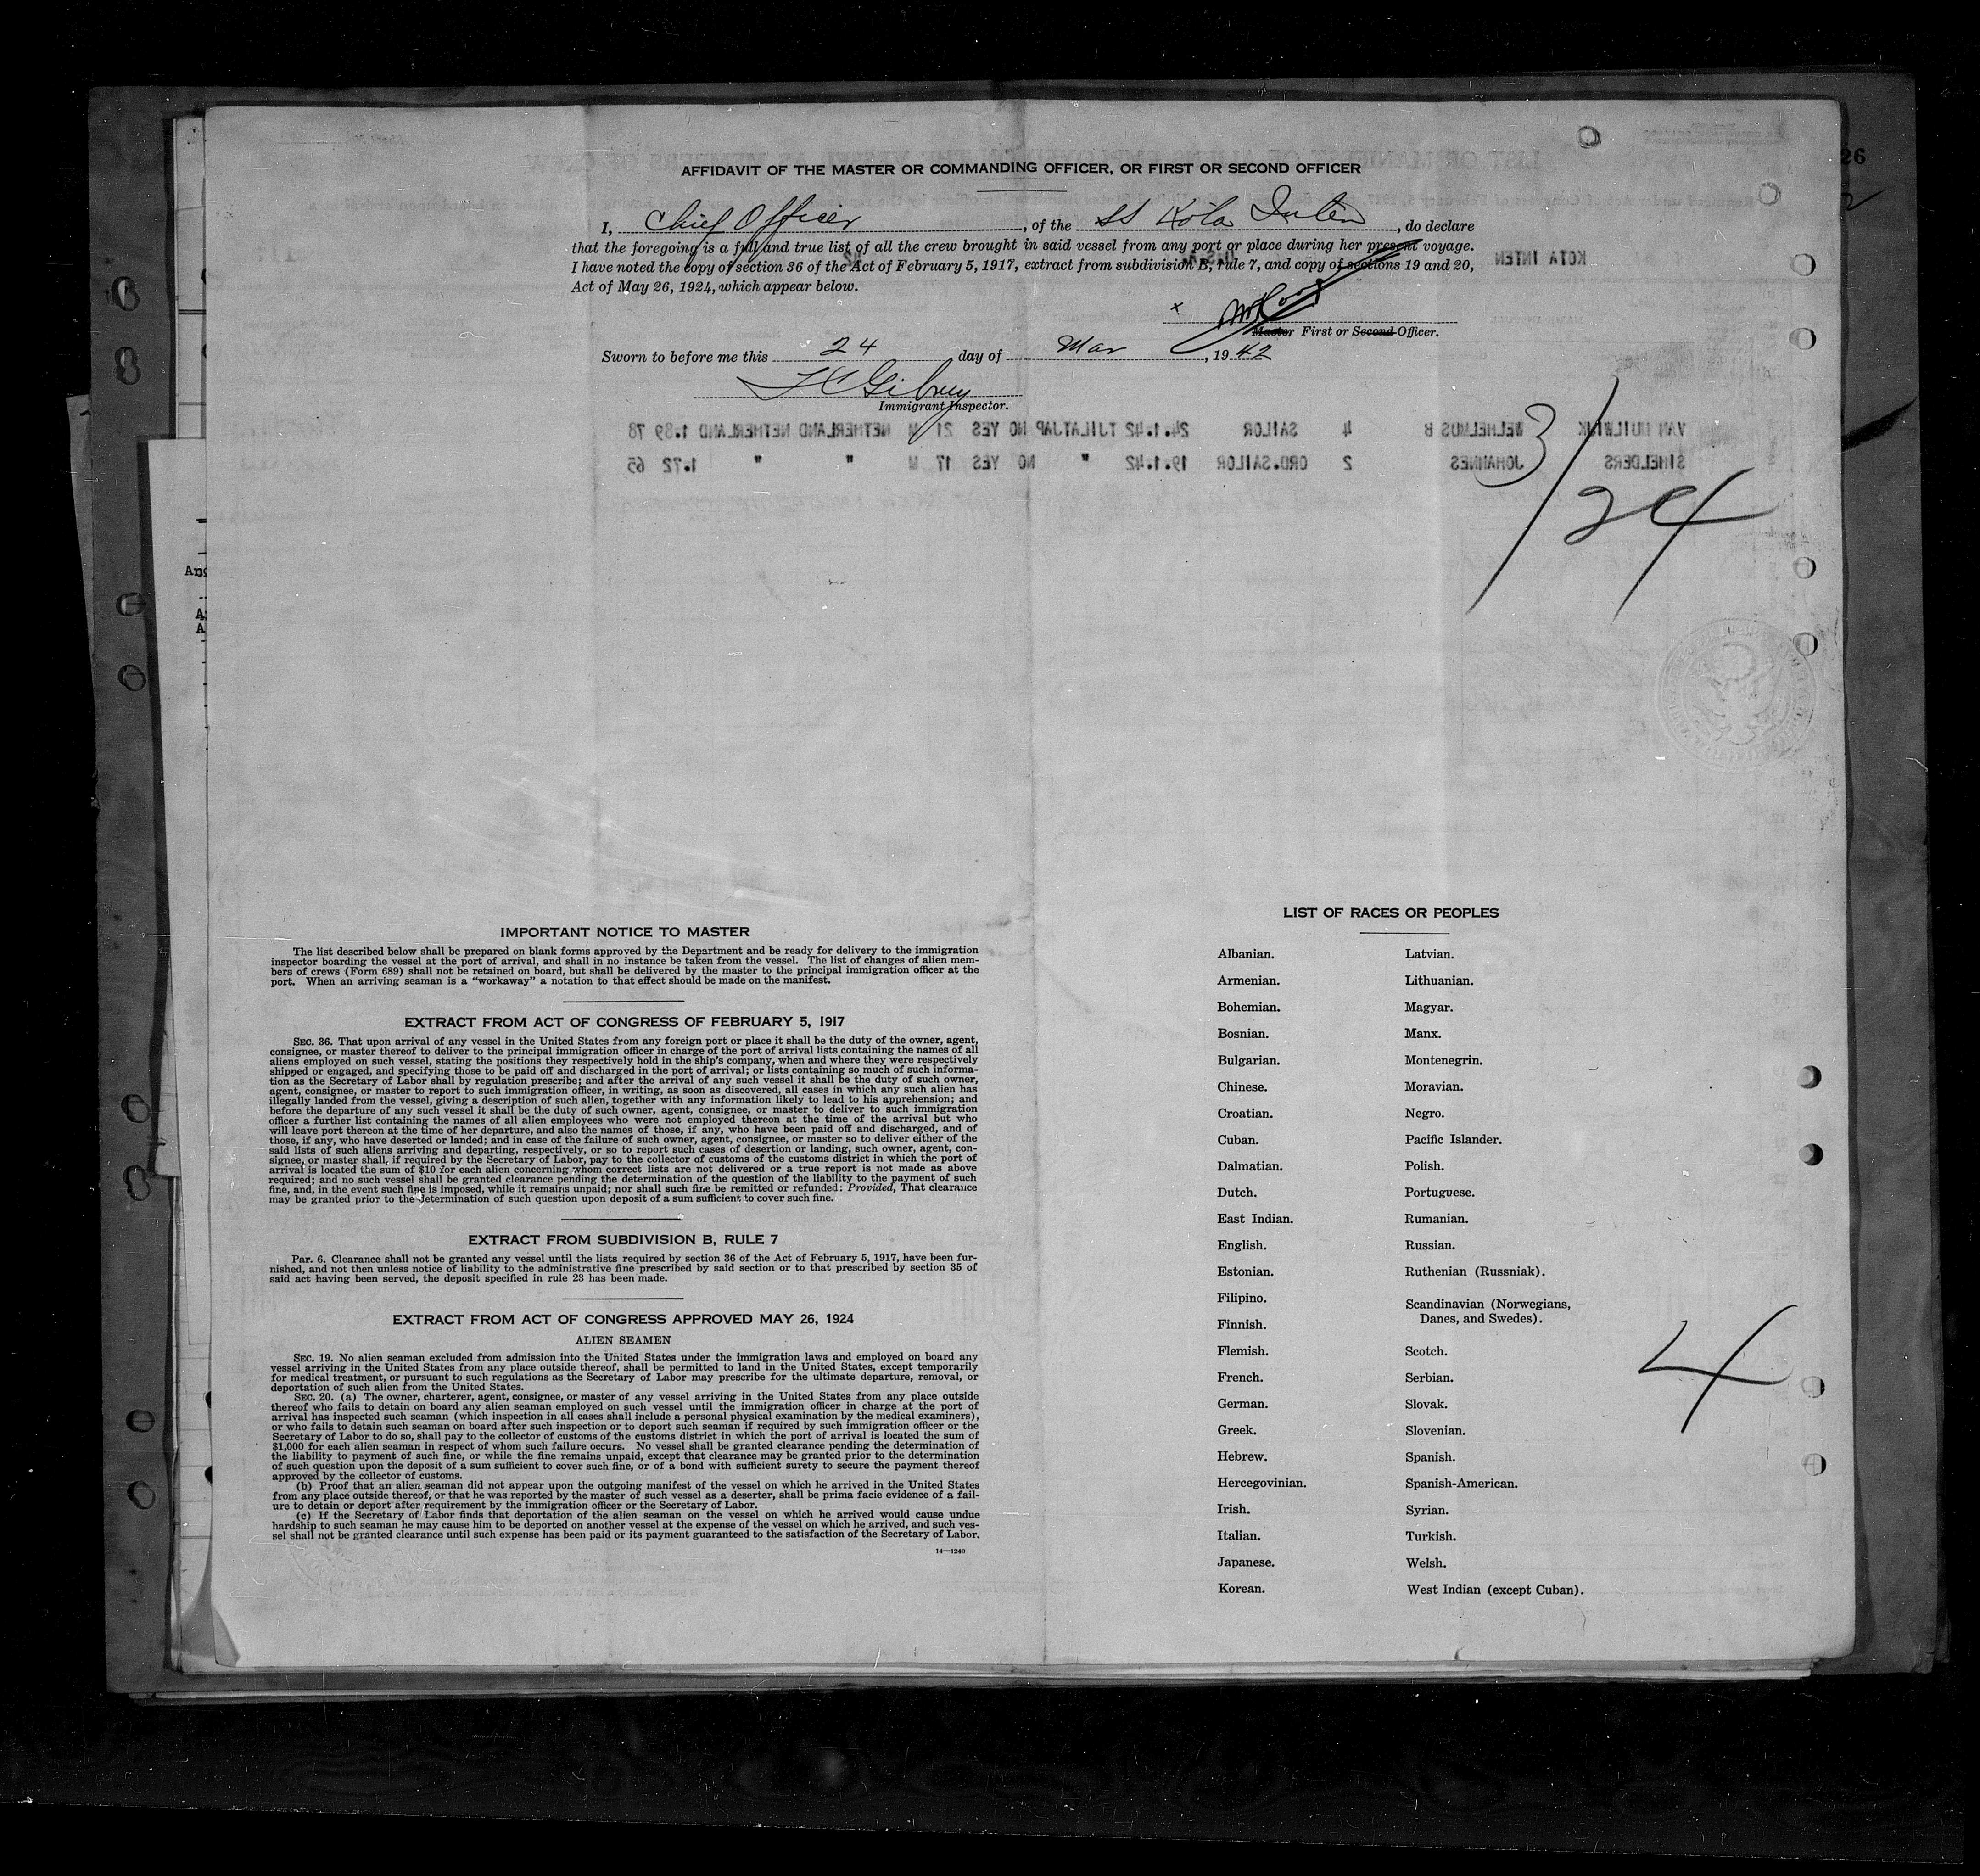 AFFIDAVIT OF THE MASTER OR COMMANDING OFFICER, OR FIRST OR SECOND OFFICER
I, Chief Officer, of the SS Kota Inten, do declare
that the foregoing is a full and true list of all the crew brought in said vessel from any port or place during her present voyage.
I have noted the copy of section 36 of the Act of February 5, 1917, extract from subdivision B, rule 7, and copy of sections 19 and 20,
Act of May 26, 1924, which appear below.
KOTA INTEN
x
Master First or Second Officer.
Sworn to before me this 24 day of Mar, 1942
Immigrant Inspector.
VAN WELHELMUS B 4 SAILOR 24.1.42 TJILATJAP NO YES 21 M NETHERLAND NETHERLAND 1.89 78
SIHELDERS JOHANNES 2 ORD.SAILOR 19.1.42 " NO YES 17 M " " 1.72 65
3/24
26
IMPORTANT NOTICE TO MASTER
The list described below shall be prepared on blank forms approved by the Department and be ready for delivery to the immigration
inspector boarding the vessel at the port of arrival, and shall in no instance be taken from the vessel. The list of changes of alien mem-
bers of crews (Form 689) shall not be retained on board, but shall be delivered by the master to the principal immigration officer at the
port. When an arriving seaman is a "workaway" a notation to that effect should be made on the manifest.
EXTRACT FROM ACT OF CONGRESS OF FEBRUARY 5, 1917
SEC. 36. That upon arrival of any vessel in the United States from any foreign port or place it shall be the duty of the owner, agent,
consignee, or master thereof to deliver to the principal immigration officer in charge of the port of arrival lists containing the names of all
aliens employed on such vessel, stating the positions they respectively hold in the ship's company, when and where they were respectively
shipped or engaged, and specifying those to be paid off and discharged in the port of arrival; or lists containing so much of such informa-
tion as the Secretary of Labor shall by regulation prescribe; and after the arrival of any such vessel it shall be the duty of such owner,
agent, consignee, or master to report to such immigration officer, in writing, as soon as discovered, all cases in which any such alien has
illegally landed from the vessel, giving a description of such alien, together with any information likely to lead to his apprehension; and
before the departure of any such vessel it shall be the duty of such owner, agent, consignee, or master to deliver to such immigration
officer a further list containing the names of all alien employees who were not employed thereon at the time of the arrival but who
will leave port thereon at the time of her departure, and also the names of those, if any, who have been paid off and discharged, and of
those, if any, who have deserted or landed; and in case of the failure of such owner, agent, consignee, or master so to deliver either of the
said lists of such aliens arriving and departing, respectively, or so to report such cases of desertion or landing, such owner, agent, con-
signee, or master shall, if required by the Secretary of Labor, pay to the collector of customs of the customs district in which the port of
arrival is located the sum of $10 for each alien concerning whom correct lists are not delivered or a true report is not made as above
required; and no such vessel shall be granted clearance pending the determination of the question of the liability to the payment of such
fine, and, in the event such fine is imposed, while it remains unpaid; nor shall such fine be remitted or refunded: Provided, That clearance
may be granted prior to the determination of such question upon deposit of a sum sufficient to cover such fine.
EXTRACT FROM SUBDIVISION B, RULE 7
Par. 6. Clearance shall not be granted any vessel until the lists required by section 36 of the Act of February 5, 1917, have been fur-
nished, and not then unless notice of liability to the administrative fine prescribed by said section or to that prescribed by section 35 of
said act having been served, the deposit specified in rule 23 has been made.
EXTRACT FROM ACT OF CONGRESS APPROVED MAY 26, 1924
ALIEN SEAMEN
SEC. 19. No alien seaman excluded from admission into the United States under the immigration laws and employed on board any
vessel arriving in the United States from any place outside thereof, shall be permitted to land in the United States, except temporarily
for medical treatment, or pursuant to such regulations as the Secretary of Labor may prescribe for the ultimate departure, removal, or
deportation of such alien from the United States.
SEC. 20. (a) The owner, charterer, agent, consignee, or master of any vessel arriving in the United States from any place outside
thereof who fails to detain on board any alien seaman employed on such vessel until the immigration officer in charge at the port of
arrival has inspected such seaman (which inspection in all cases shall include a personal physical examination by the medical examiners),
or who fails to detain such seaman on board after such inspection or to deport such seaman if required by such immigration officer or the
Secretary of Labor to do so, shall pay to the collector of customs of the customs district in which the port of arrival is located the sum of
$1,000 for each alien seaman in respect of whom such failure occurs. No vessel shall be granted clearance pending the determination of
the liability to payment of such fine, or while the fine remains unpaid, except that clearance may be granted prior to the determination
of such question upon the deposit of a sum sufficient to cover such fine, or of a bond with sufficient surety to secure the payment thereof
approved by the collector of customs.
(b) Proof that an alien seaman did not appear upon the outgoing manifest of the vessel on which he arrived in the United States
from any place outside thereof, or that he was reported by the master of such vessel as a deserter, shall be prima facie evidence of a fail-
ure to detain or deport after requirement by the immigration officer or the Secretary of Labor.
(c) If the Secretary of Labor finds that deportation of the alien seaman on the vessel on which he arrived would cause undue
hardship to such seaman he may cause him to be deported on another vessel at the expense of the vessel on which he arrived, and such ves-
sel shall not be granted clearance until such expense has been paid or its payment guaranteed to the satisfaction of the Secretary of Labor.
14—1240
LIST OF RACES OR PEOPLES
Albanian. Latvian.
Armenian. Lithuanian.
Bohemian. Magyar.
Bosnian. Manx.
Bulgarian. Montenegrin.
Chinese. Moravian.
Croatian. Negro.
Cuban. Pacific Islander.
Dalmatian. Polish.
Dutch. Portuguese.
East Indian. Rumanian.
English. Russian.
Estonian. Ruthenian (Russniak).
Filipino. Scandinavian (Norwegians,
Danes, and Swedes).
Finnish.
Flemish. Scotch.
French. Serbian.
German. Slovak.
Greek. Slovenian.
Hebrew. Spanish.
Hercegovinian. Spanish-American.
Irish. Syrian.
Italian. Turkish.
Japanese. Welsh.
Korean. West Indian (except Cuban).
4